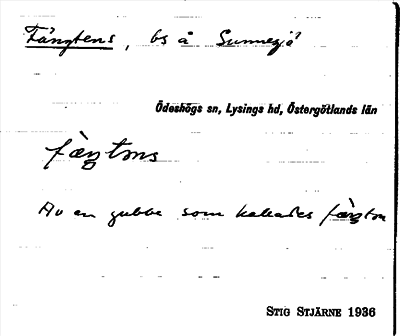 Fängtens, bs å Sunnesjö
Ödeshögs sn, Lysings hd, Östergötlands län
fæŋtɷns
Av en gubbe som kallades fæŋtɷn
STIG STJÄRNE 1936